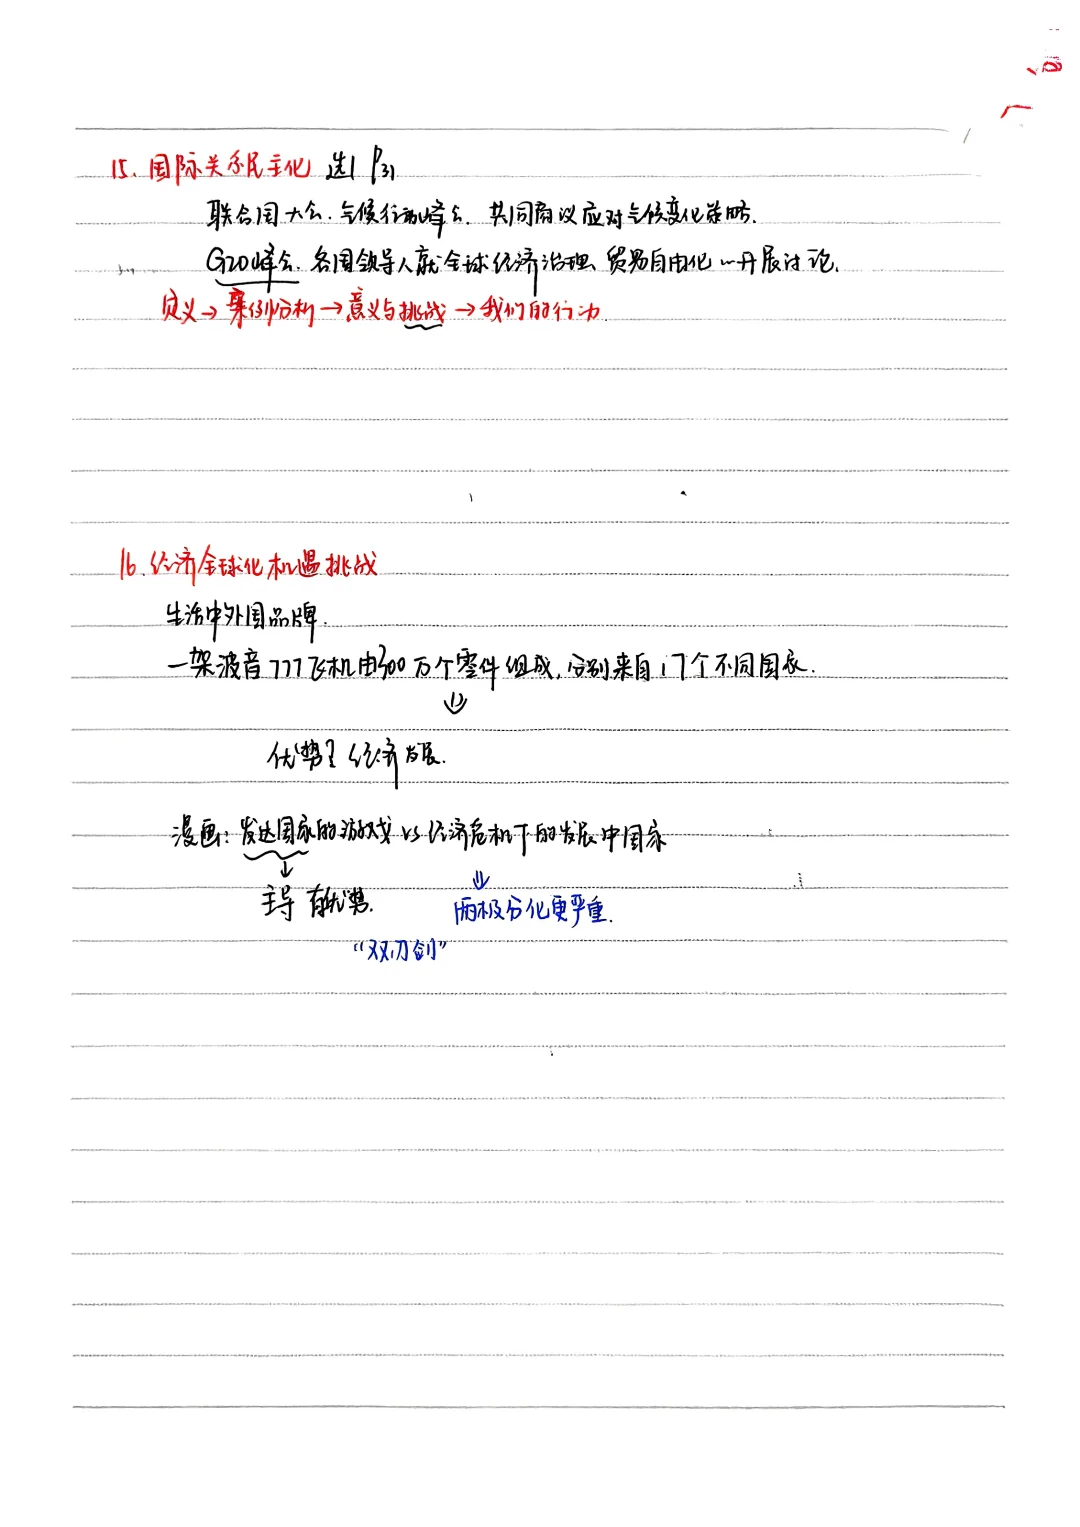 15. 国际关系民主化 选1 P31
联合国大会. 气候行动峰会. 共同商议应对气候变化策略.
G20峰会. 各国领导人就全球经济治理、贸易自由化…开展讨论.
定义→案例分析→意义与挑战→我们的行动.
16. 经济全球化机遇挑战
生活中外国品牌.
一架波音777飞机由300万个零件组成, 分别来自17个不同国家.
⇓
优势 经济发展.
漫画: 发达国家的游戏 vs 经济危机下的发展中国家
↓ ⇓
主导 有优势. 两极分化更严重.
“双刃剑”